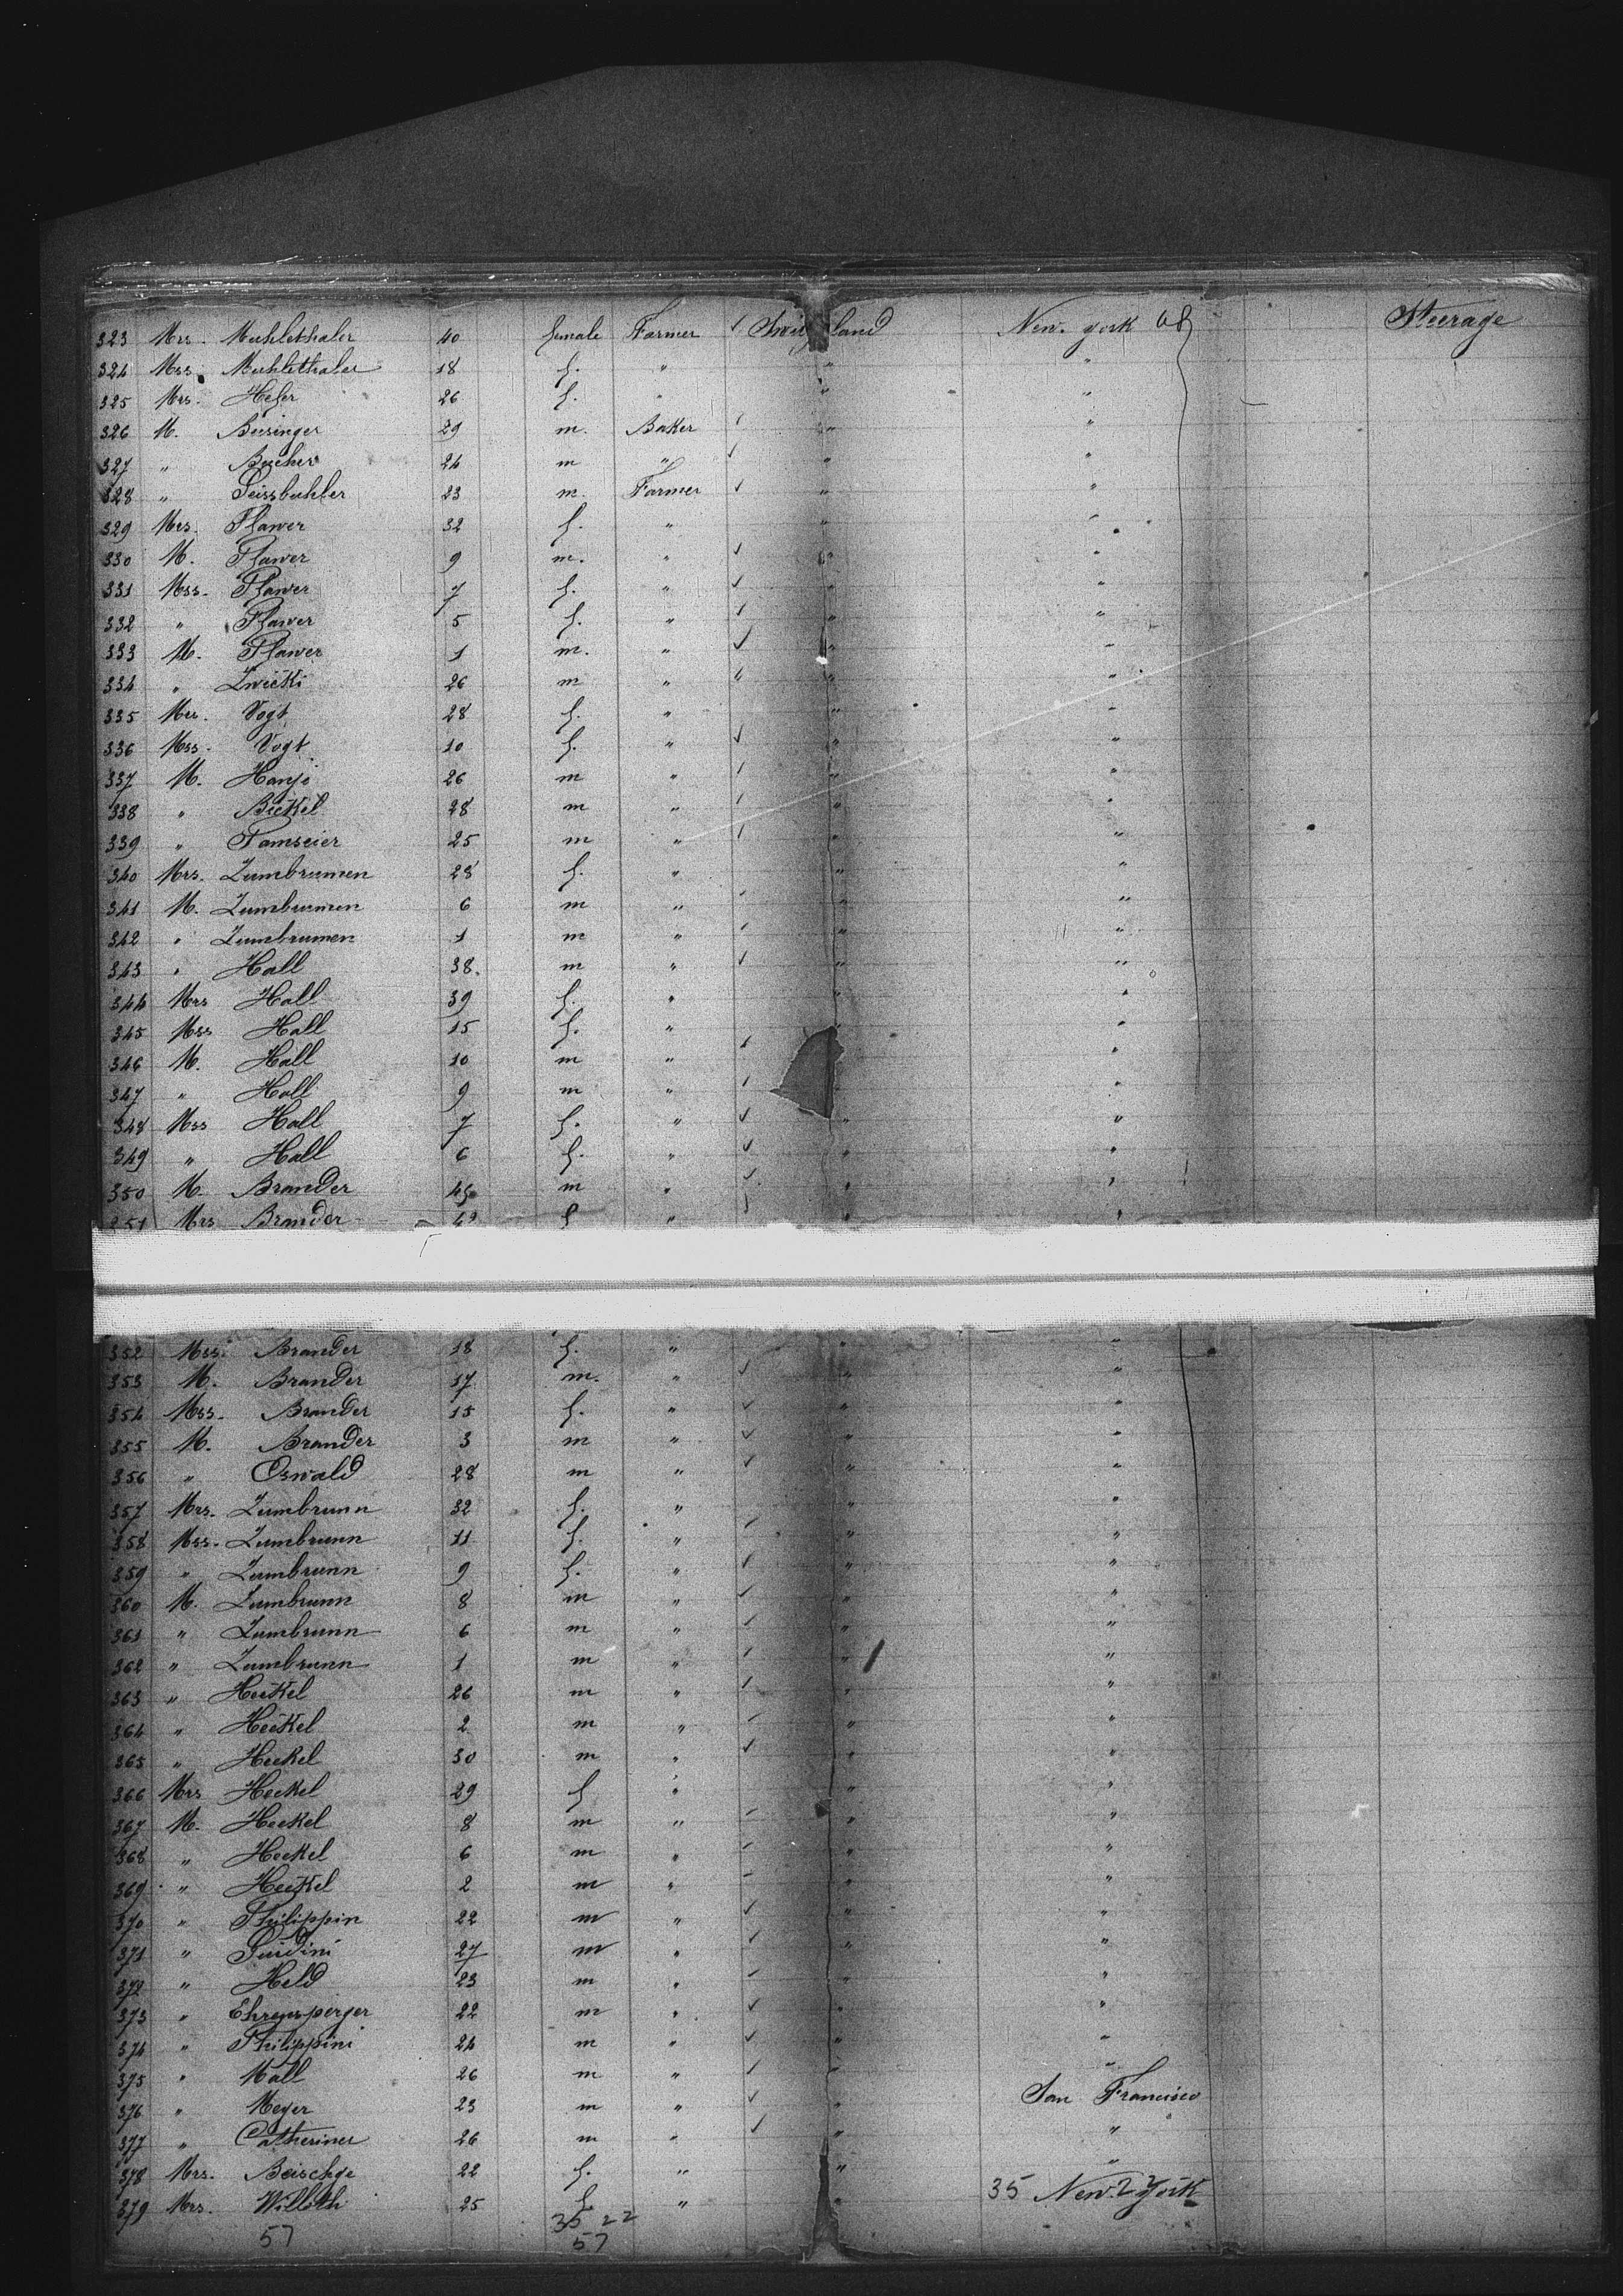 323 Mrs. Muhlethaler 40 female Farmer ✓ Switzerland New. york Steerage
324 Mss. Muhlethaler 18 f. " " "
325 Mrs. Hefer 26 f. " " "
326 M. Biesinger 29 m. Baker ✓ " "
327 " Bucher 24 m " ✓ " "
328 " Seissbuhler 23 m. Farmer ✓ " "
329 Mrs. Pfawer 32 f. " " "
330 M. Pfawer 9 m. " ✓ " "
331 Mss. Pfawer 7 f. " ✓ " "
332 " Pfawer 5 f. " ✓ " "
333 M. Pfawer 1 m. " ✓ " "
334 " Zwicki 26 m " " " "
335 Mrs. Vogt 28 f. " " "
336 Mss. Vogt 10 f. " ✓ " "
337 M. Hanjo 26 m " ✓ " "
338 " Bickel 28 m " ✓ " "
339 " Tamseier 25 m " ✓ " "
340 Mrs. Zumbrumen 28 f. " " "
341 M. Zumbrumen 6 m " ✓ " "
342 " Zumbrumen 1 m " ✓ " "
343 " Hall 38. m " ✓ " "
344 Mrs Hall 39 f. " " "
345 Mss Hall 15 f. " "
346 M. Hall 10 m " ✓ "
347 " Hall 9 m " ✓ "
348 Mss Hall 7 f. " ✓ " "
349 " Hall 6 f. " ✓ " "
350 M. Brander m " ✓ " "
351 Mrs Brander f " ✓ " "
352 Mss. Brander 18 f. " " "
353 M. Brander 17 m. " ✓ " "
354 Mss. Brander 15 f. " ✓ " "
355 M. Brander 3 m " ✓ " "
356 " Oswald 28 m " ✓ " "
357 Mrs. Zumbrunn 32 f. " " "
358 Mss. Zumbrunn 11 f. " ✓ " "
359 " Zumbrunn 9 f. " ✓ " "
360 M. Zumbrunn 8 m " ✓ " "
361 " Zumbrunn 6 m " ✓ " "
362 " Zumbrunn 1 m " ✓ " "
363 " Heckel 26 m " ✓ " "
364 " Heckel 2 m " ✓ " "
365 " Heckel 30 m " ✓ " "
366 Mrs Heckel 29 f " " "
367 M. Heckel 8 m " ✓ " "
368 " Heckel 6 m " ✓ " "
369 " Heckel 2 m " ✓ " "
370 " Philippin 22 m " ✓ " "
371 " Guidini 27 m " ✓ " "
372 " Held 23 m " ✓ " "
373 " Ehrensperger 22 m " ✓ " "
374 " Philippini 24 m " ✓ " "
375 " Mall 26 m " ✓ " "
376 " Meyer 23 m " ✓ " San Francisco
377 " Catheriner 26 m " ✓ " "
378 Mrs. Beischge 22 f. " " "
379 Mrs. Willoth 25 f. " " 35 New 22 york
35 22
57 57